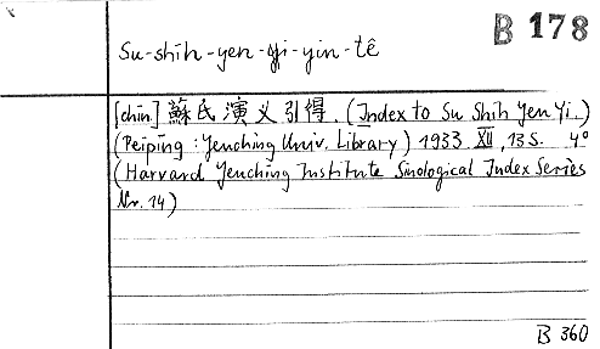 B 178
Su-shih-yen-yi-yin-tê
[chin.] 蘇氏演义引得. (Index to Su Shih Yen Yi.)
(Peiping : Yenching Univ. Library) 1933. XII, 13 S. 4°
(Harvard Yenching Institute Sinological Index Series
Nr. 14)
B 360